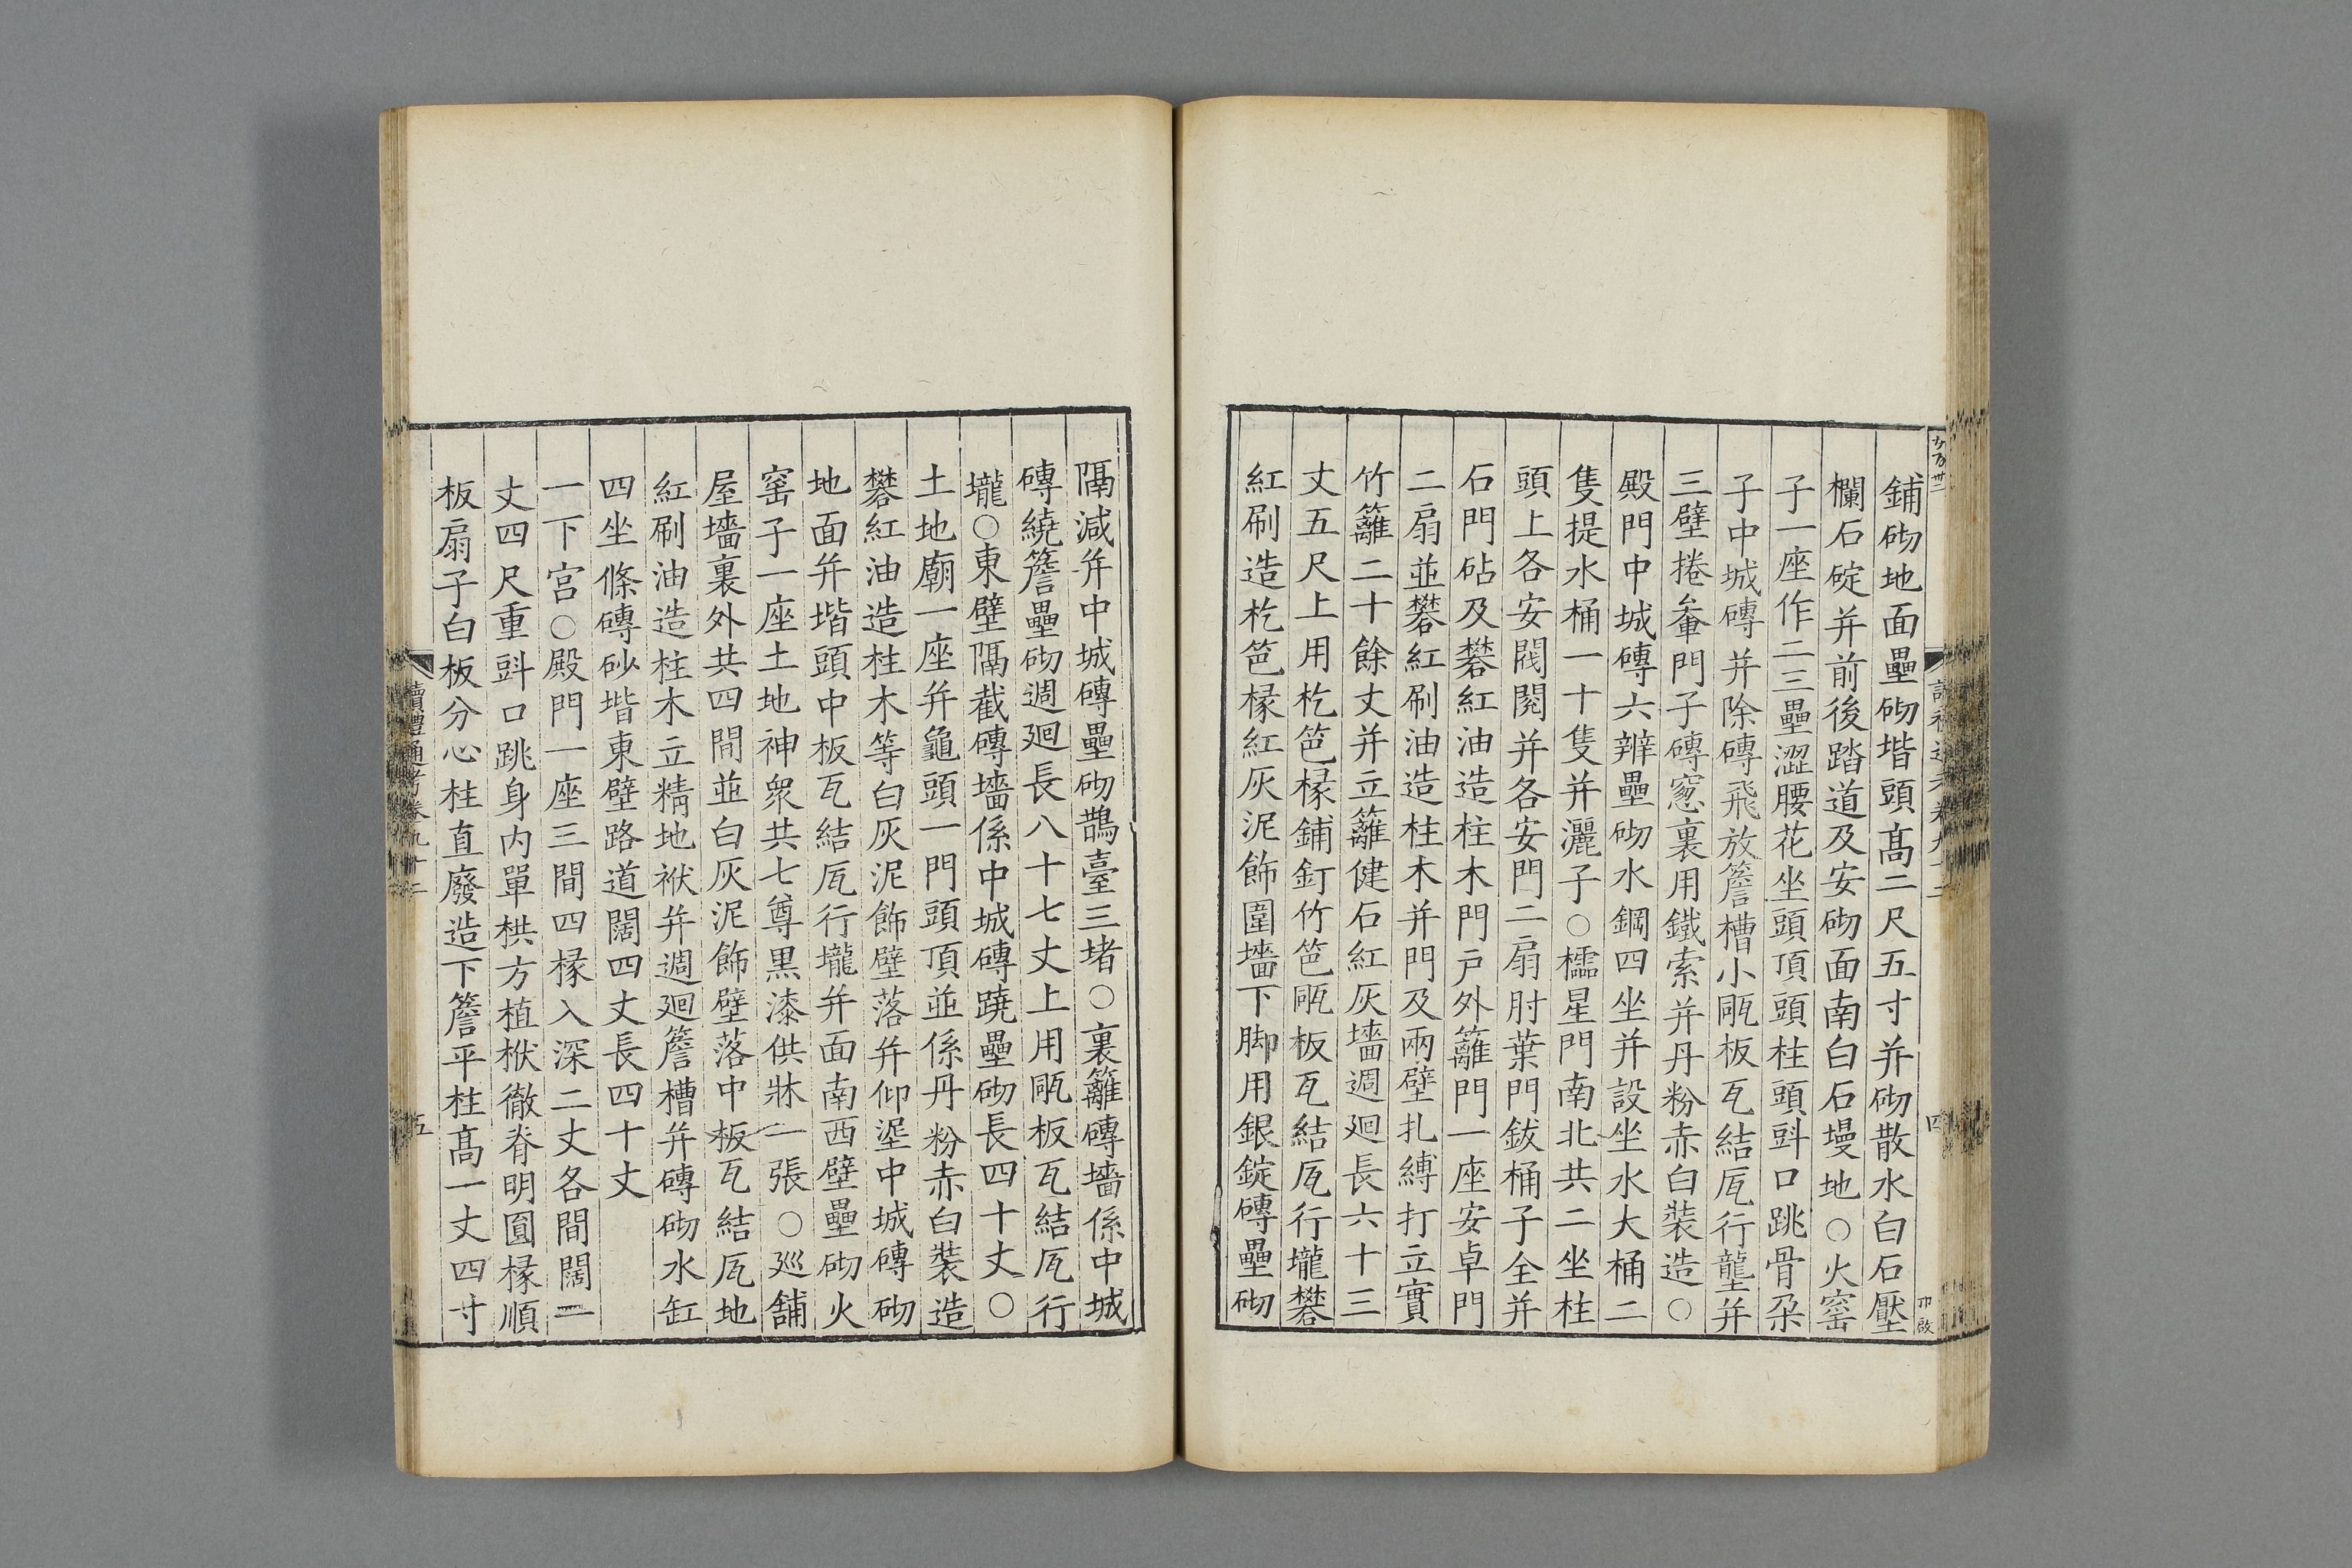 鋪砌地面壘砌堦頭髙二尺五寸并砌散水白石壓
欄石碇并前後踏道及安砌面南白石墁地○火窰
子一座作二三壘澀腰花坐頭頂頭柱頭㪷口跳骨朶
子中城磚并除磚飛放簷槽小㼧板瓦結瓦行壟并
三壁捲輂門子磚窻裏用鐵索并丹粉赤白裝造○
殿門中城磚六辨壘砌水鋼四坐并設坐水大桶二
隻提水桶一十隻并灑子○櫺星門南北共二坐柱
頭上各安閥閱并各安門二扇肘葉門鈸桶子全并
石門砧及礬紅油造柱木門戸外籬門一座安卓門
二扇並礬紅刷油造柱木并門及兩壁扎縛打立實
竹籬二十餘丈并立籬健石紅灰墻週廻長六十三
丈五尺上用杚笆椽鋪釘竹笆㼧板瓦結瓦行壠礬
紅刷造杚笆椽紅灰泥飾圍墻下脚用銀錠磚壘砌
隔減并中城磚壘砌鵲臺三堵○裏籬磚墻係中城
磚繞簷壘砌週廻長八十七丈上用㼧板瓦結瓦行
壠○東壁隔截磚墻係中城磚蹺壘砌長四十丈○
土地廟一座并龜頭一門頭頂並係丹粉赤白裝造
礬紅油造柱木等白灰泥飾壁落并仰埿中城磚砌
地面并堦頭中板瓦結瓦行壠并面南西壁壘砌火
窰子一座土地神衆共七尊黒漆供牀一張○廵舖
屋墻裏外共四間並白灰泥飾壁落中板瓦結瓦地
紅刷油造柱木立精地袱并週廻簷槽并磚砌水缸
四坐條磚砂堦東壁路道闊四丈長四十丈
一下宫○殿門一座三間四椽入深二丈各間闊二
丈四尺重㪷口跳身内單栱方植栿徹脊明圓椽順
板扇子白板分心柱直廢造下簷平柱髙一丈四寸
讀禮通考卷九十二
五
四